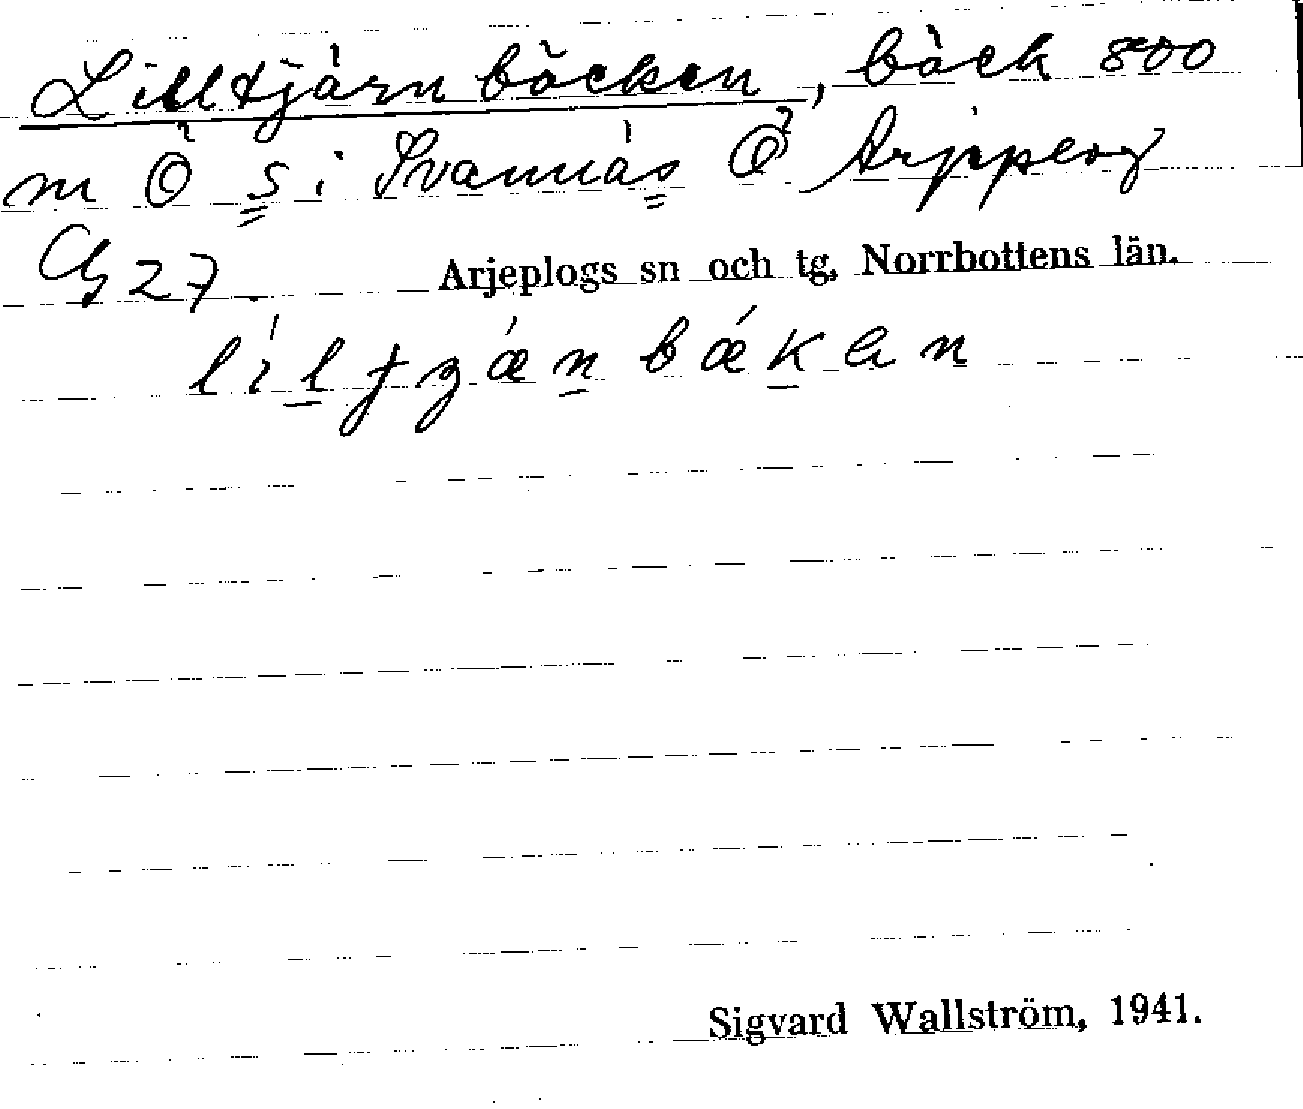 Lilltjärnbäcken, bäck 800
m Ö s i Svannäs Ö Arjepperg
G 27 Arjeplogs sn och tg, Norrbottens län.
liltjænbækan
Sigvard Wallström, 1941.